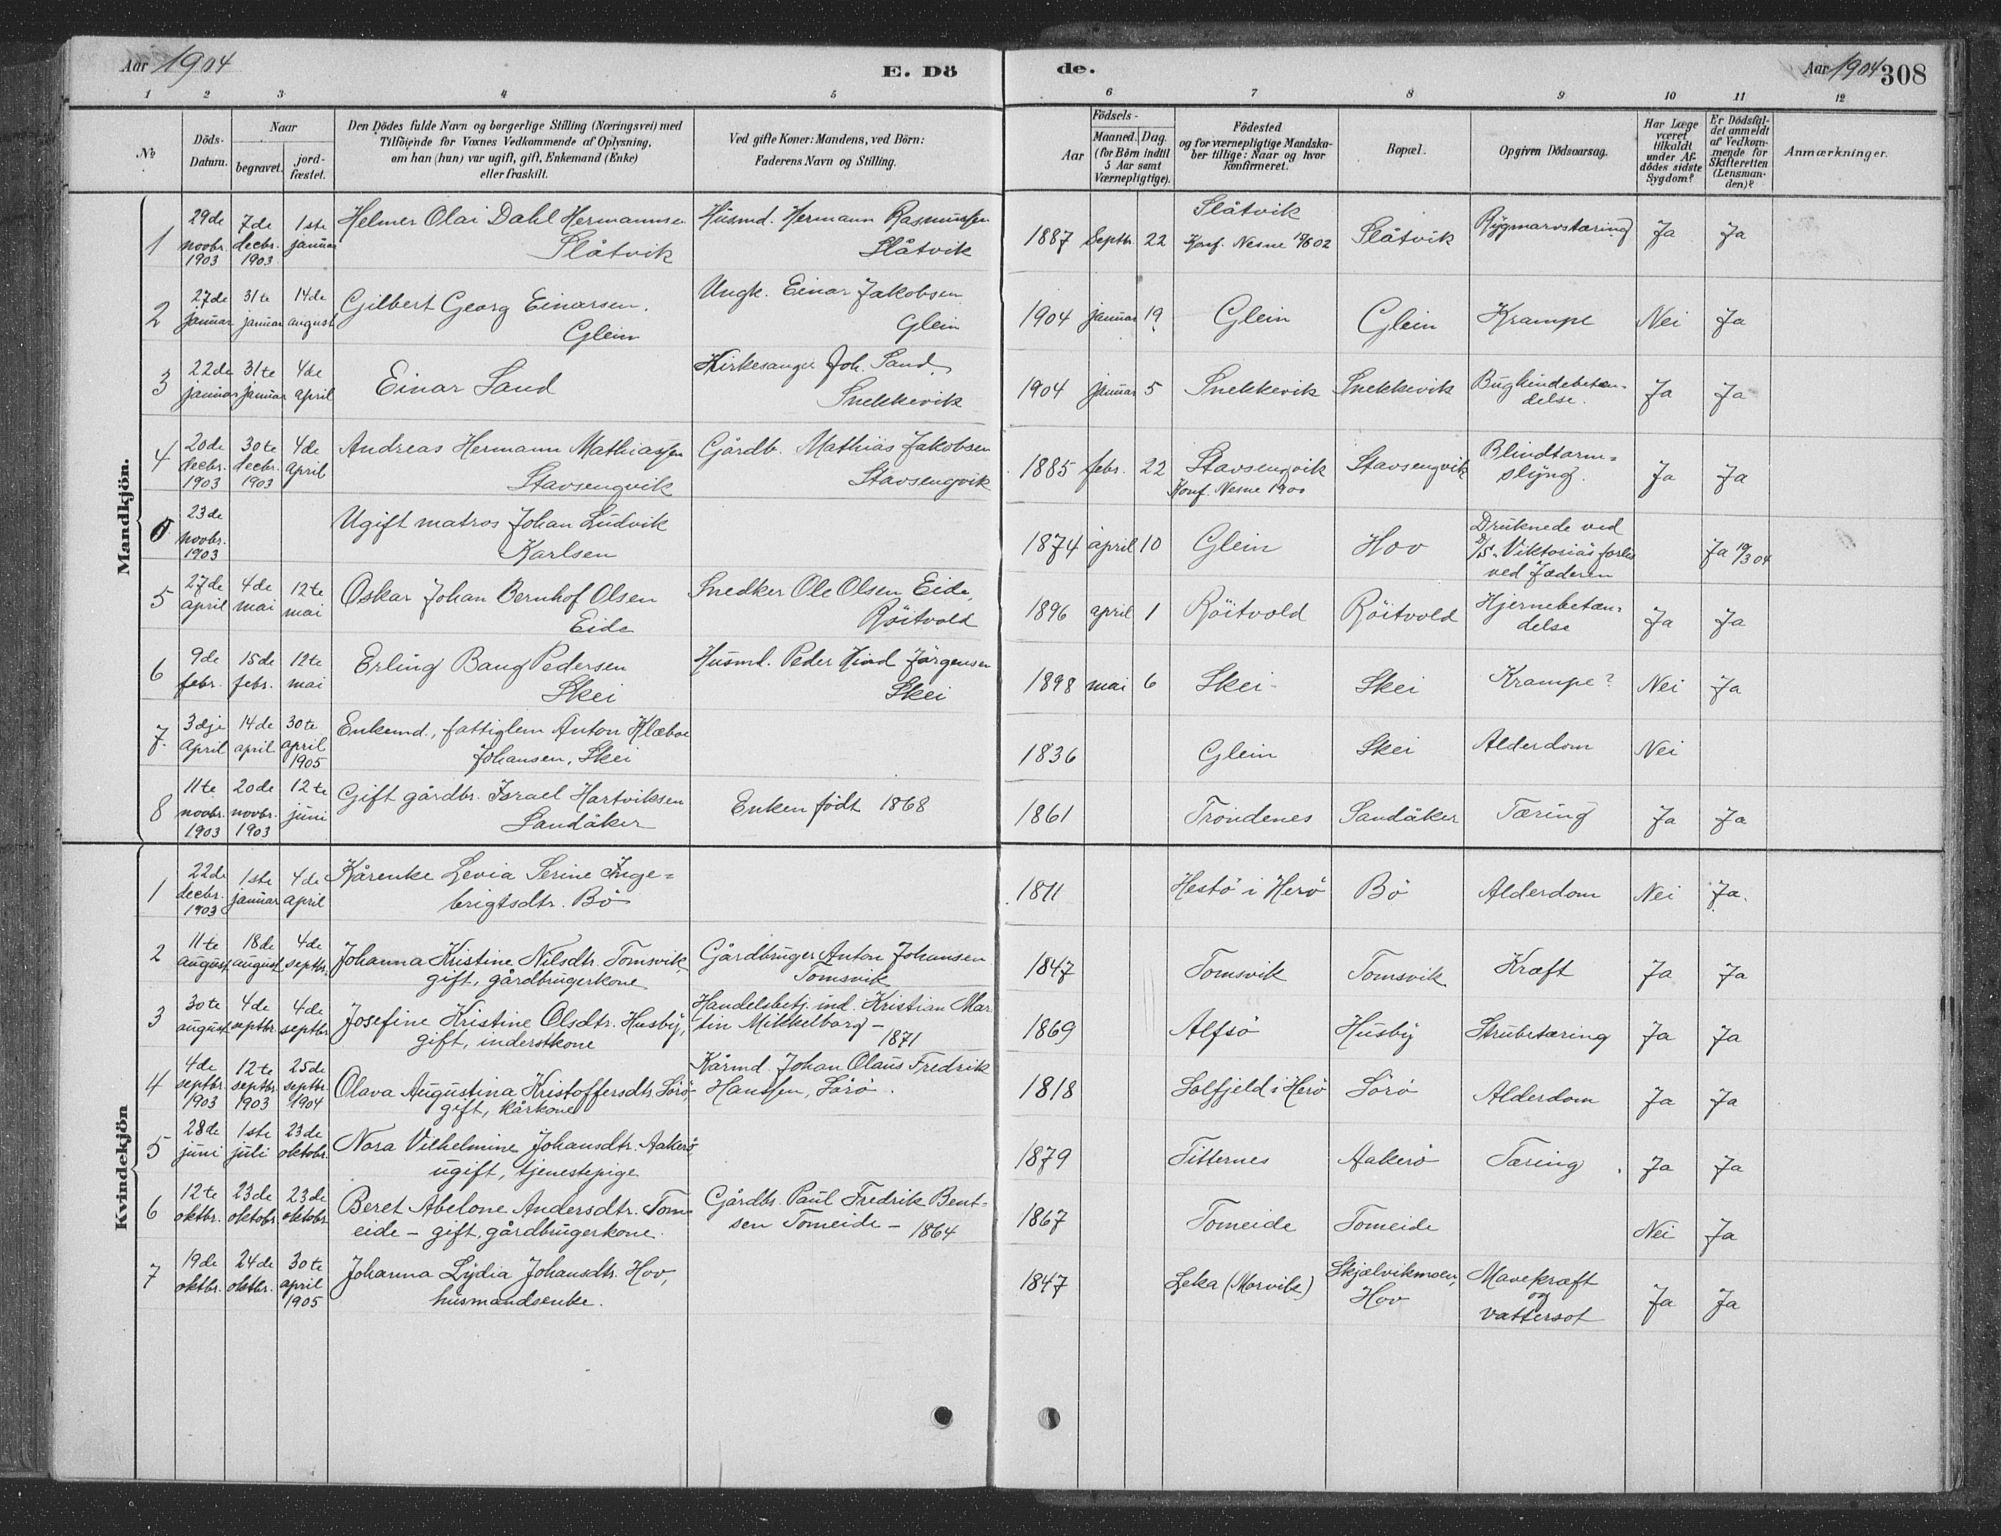 Aar 1904
E. Dö
de.
Aar 1904 308
1 2 3 4 5 6 7 8 9 10 11 12
№
Döds-
Datum.
Naar
begravet.
jord-
fæstet.
Den Dödes fulde Navn og borgerlige Stilling (Næringsvei) med
Tilföiende for Voxnes Vedkommende af Oplysning,
om han (hun) var ugift, gift, Enkemand (Enke)
eller fraskilt.
Ved gifte Koner: Mandens, ved Börn:
Faderens Navn og Stilling.
Födsels-
Aar
Maaned. Dag.
(for Börn indtil
5 Aar samt
Værnepligtige).
Födested
og for værnepligtige Mandska-
ber tillige: Naar og hvor
konfirmeret.
Bopæl.
Opgiven Dödsaarsag.
Har Læge
været
tilkaldt
under Af-
dödes sidste
Sygdom?
Er Dödsfal-
det anmeldt
af Vedkom-
mende for
Skifteretten
(Lensman-
den)?
Anmærkninger.
Mandkjön.
1 29de novbr. 1903 7de decbr. 1903 1ste januar Helmer Olai Dahl Hermannsen Slåtvik Husmd. Hermann Rasmussen Slåtvik 1887 Septbr. 22 Slåtvik Konf. Nesne 02 Slåtvik Rygmarvstæring Ja Ja
2 27de januar 31te januar 14de august Gilbert Georg Einarsen. Glein Ungk. Einar Jakobsen Glein 1904 januar 19 Glein Glein Krampe Nei Ja
3 22de januar 31te januar 4de april Einar Sand Kirkesanger Joh. Sand, Snekkevik 1904 januar 5 Snekkevik Snekkevik Bughindebetæn-
delse. Ja Ja
4 20de decbr. 1903 30te decbr. 1903 4de april Andreas Hermann Mathiassen Stavsengvik Gårdb. Mathias Jakobsen Stavsengvik 1885 febr. 22 Stavsengvik Konf. Nesne 1900 Stavsengvik Blindtarm=
slyng. Ja Ja
23de novbr. 1903 Ugift matros Johan Ludvik Karlsen 1874 april 10 Glein Hov Druknede ved
D/S. Viktorias forlis
ved Jæderen Ja 19/3 04
5 27de april 4de mai 12te mai Oskar Johan Bernhof Olsen Eide Snedker Ole Olsen Eide, Röitvold 1896 april 1 Röitvold Röitvold Hjernebetæn-
delse Ja Ja
6 9de febr. 15de febr. 12te mai Erling Bang Pedersen Skei Husmd. Peder Hind Jørgensen Skei 1898 mai 6 Skei Skei Krampe? Nei Ja
7. 3dje april 14de april 30te april 1905 Enkemd., fattiglem Anton Klæboe
Johansen, Skei 1836 Glein Skei Alderdom Nei
8 11te novbr. 1903 20de novbr. 1903 12te juni Gift gårdbr. Israel Hartviksen
Sandåker Enken født 1868 1861 Trondenes Sandåker Tæring Ja Ja
Kvindekjön
1 22de decbr. 1903 1ste januar 4de april Kårenke Levia Serine Inge=
brigtsdtr. Bö 1811 Hestö i Herö Bö Alderdom Nei Ja.
2 11te august 18de august 4de septbr. Johanna Kristine Nilsdtr. Tomsvik,
gift, gårdbrugerkone Gårdbruger Anton Johansen
Tomsvik 1847 Tomsvik Tomsvik Kræft Ja Ja
3 30te august 4de septbr. 4de septbr. Josefine Kristine Olsdtr. Husby,
gift, inderstkone Handelsbetj. ind. Kristian Mar
tin Mikkelborg - 1871 1869 Alfsö Husby Strubetæring Ja Ja
4 4de septbr. 1903 12te septbr. 1903 25de septbr. 1904 Olava Augustina Kristoffersdtr. Sörö,
gift, kårkone Kårmd. Johan Olaus Fredrik
Hanssen, Sörö. 1818 Solfjeld i Herö Sörö Alderdom Ja Ja
5 28de juni 1ste juli 23de oktobr. Nora Vilhelmine Johansdtr. Aakerö
ugift, tjenestepige 1879 Titternes Aakerö Tæring Ja Ja
6 12te oktbr. 23de oktobr. 23de oktobr. Beret Abelone Andersdtr. Tom-
eide - gift, gårdbrugerkone. Gårdbr. Paul Fredrik Bent-
sen Tomeide - 1864 1867 Tomeide Tomeide Nei Ja
7 19de oktbr. 24de oktbr. 30te april 1905 Johanna Lydia Johansdtr. Hov,
husmandsenke. 1847 Leka (Morvik) Skjælvikmoen,
Hov Mavekræft
og
vattersot Ja Ja